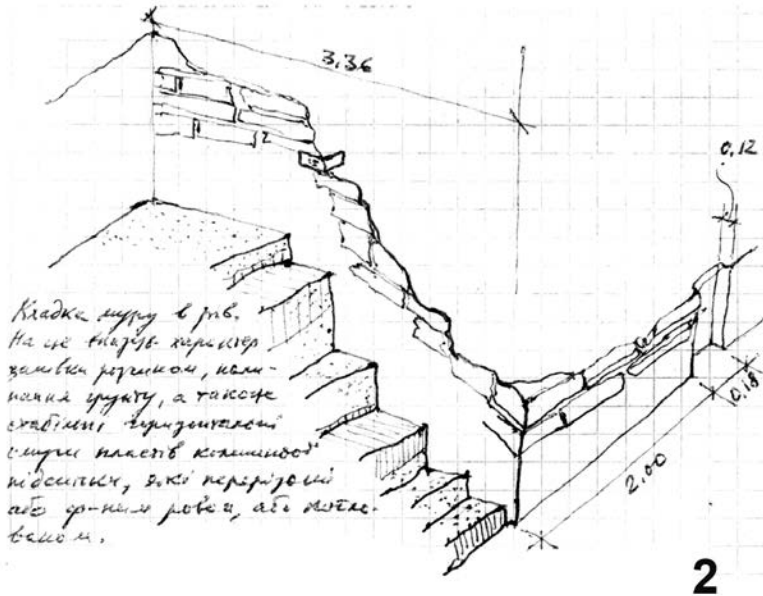 3,36
0,12
Кладка муру в рів.
На це вказує характер
заливки розчином, нали-
пання ґрунту, а також
стабільні горизонтальні
смуги пластів колишньої
підсипки, які перерізані
або ф-ним ровом, або котло-
ваном.
0,18
2,00
2